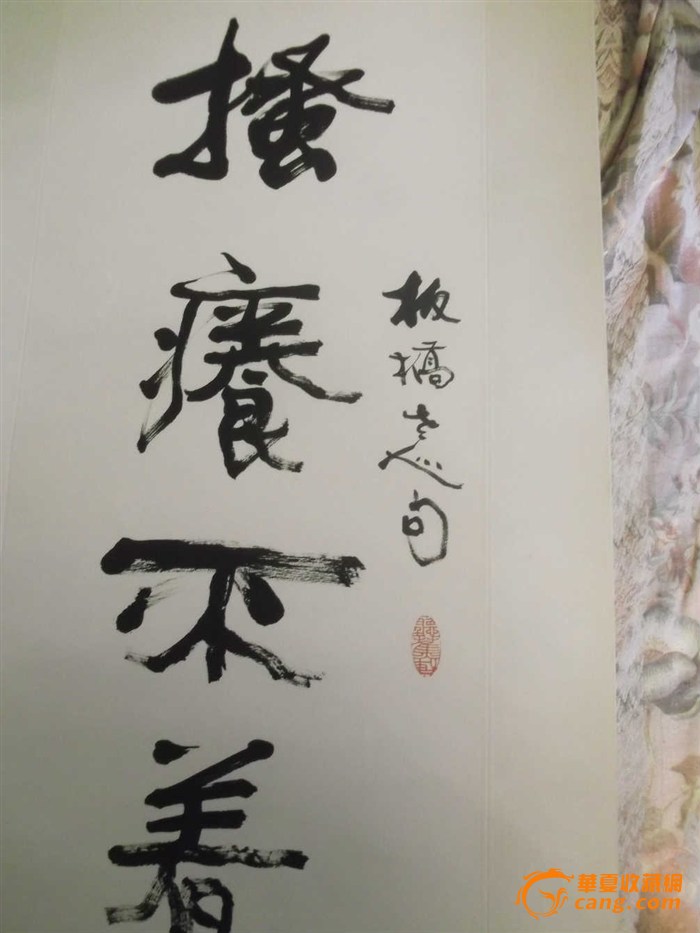 板橋句
搔癢不着
華夏收藏網
cang.com